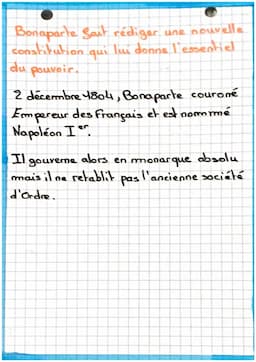 Bonaparte fait rédiger une nouvelle
constitution qui lui donne l'essentiel
du pouvoir.
2 décembre 1804, Bonaparte couroné
Empereur des Français et est nommé
Napoléon Ier.
Il gouverne alors en monarque absolu
mais il ne retablit pas l'ancienne société
d'Ordre.